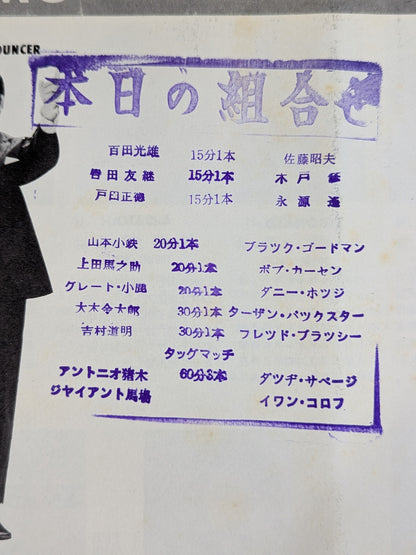 OUNCER
本日の組合せ
百田光雄 15分1本 佐藤昭夫
曽田友継 15分1本 木戸修
戸口正徳 15分1本 永源遥
山本小鉄 20分1本 ブラック・ゴードマン
上田馬之助 20分1本 ボブ・カーセン
グレート・小鹿 20分1本 ダニー・ホッジ
大木金太郎 30分1本 ターザン・バックスター
吉村道明 30分1本 フレッド・ブラッシー
タッグマッチ
アントニオ猪木 60分3本 ダッヂ・サベージ
ジャイアント馬場 イワン・コロフ